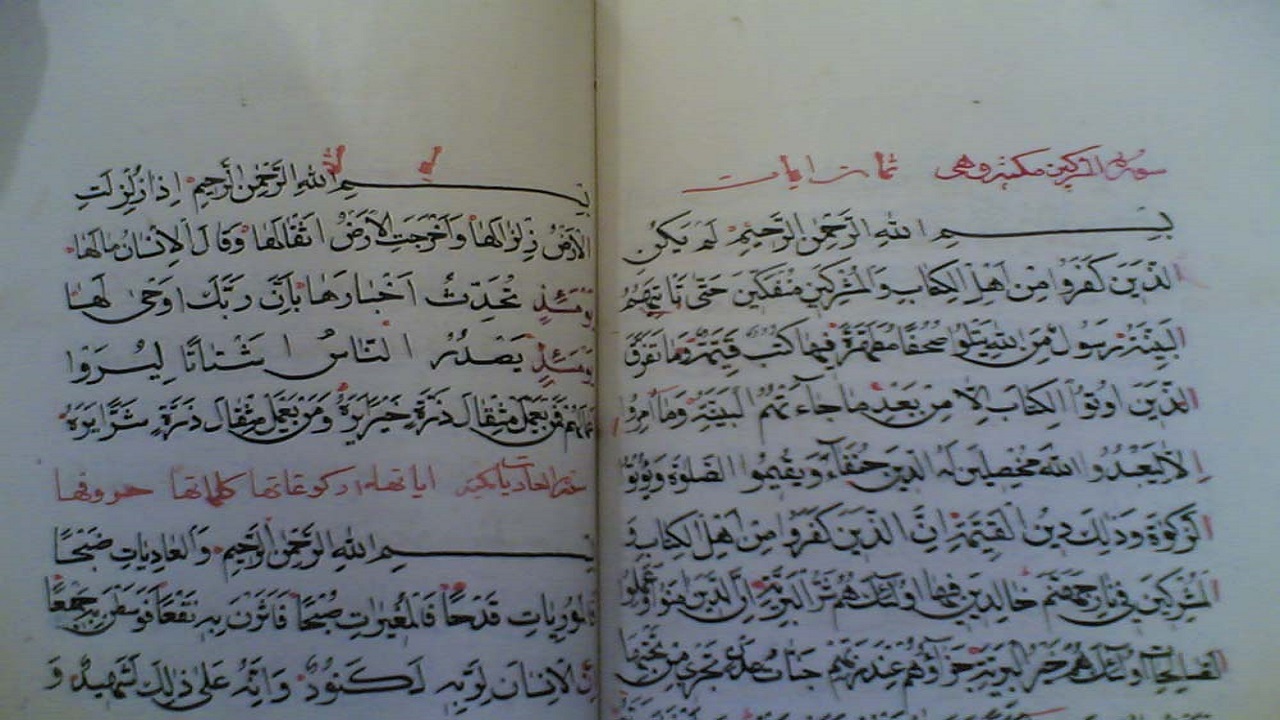 سورة لم يكن مكية وهي ثمان ايات
بسم الله الرحمن الرحيم لم يكن
الذين كفروا من اهل الكتاب والمشركين منفكين حتى تاتيهم
البينة رسول من الله يتلوا صحفا مطهرة فيها كتب قيمة وما تفرق
الذين اوتوا الكتاب الا من بعد ما جاءتهم البينة وما امروا
الا ليعبدوا الله مخلصين له الدين حنفاء ويقيموا الصلوة ويؤتوا
الزكوة وذلك دين القيمة ان الذين كفروا من اهل الكتاب و
المشركين في نار جهنم خالدين فيها اولئك هم شر البرية ان الذين امنوا وعملوا
الصالحات اولئك هم خير البرية جزاؤهم عند ربهم جنات عدن تجري من تحتها
بسم الله الرحمن الرحيم اذا زلزلت
الارض زلزالها واخرجت الارض اثقالها وقال الانسان مالها
يومئذ تحدث اخبارها بان ربك اوحى لها
يومئذ يصدر الناس اشتاتا ليروا
اعمالهم فمن يعمل مثقال ذرة خيرا يره ومن يعمل مثقال ذرة شرا يره
العاديات مكية اياتها ركوعاتها كلماتها حروفها
بسم الله الرحمن الرحيم والعاديات ضبحا
فالموريات قدحا فالمغيرات صبحا فاثرن به نقعا فوسطن به جمعا
ان الانسان لربه لكنود وانه على ذلك لشهيد و